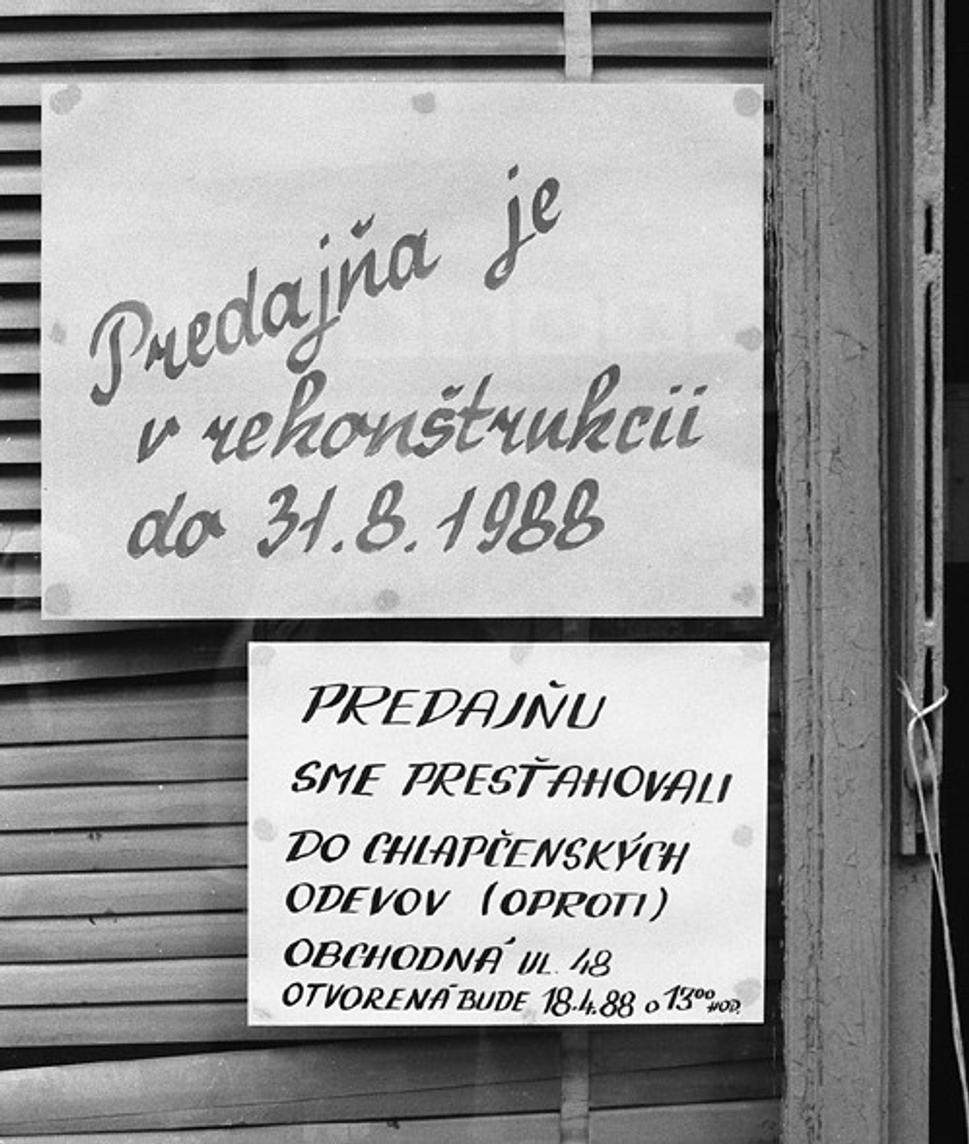 Predajňa je
v rekonštrukcii
do 31.8.1988
PREDAJŇU
SME PRESŤAHOVALI
DO CHLAPČENSKÝCH
ODEVOV (OPROTI)
OBCHODNÁ UL. 48
OTVORENÁ BUDE 18.4.88 o 13⁰⁰ HOD.